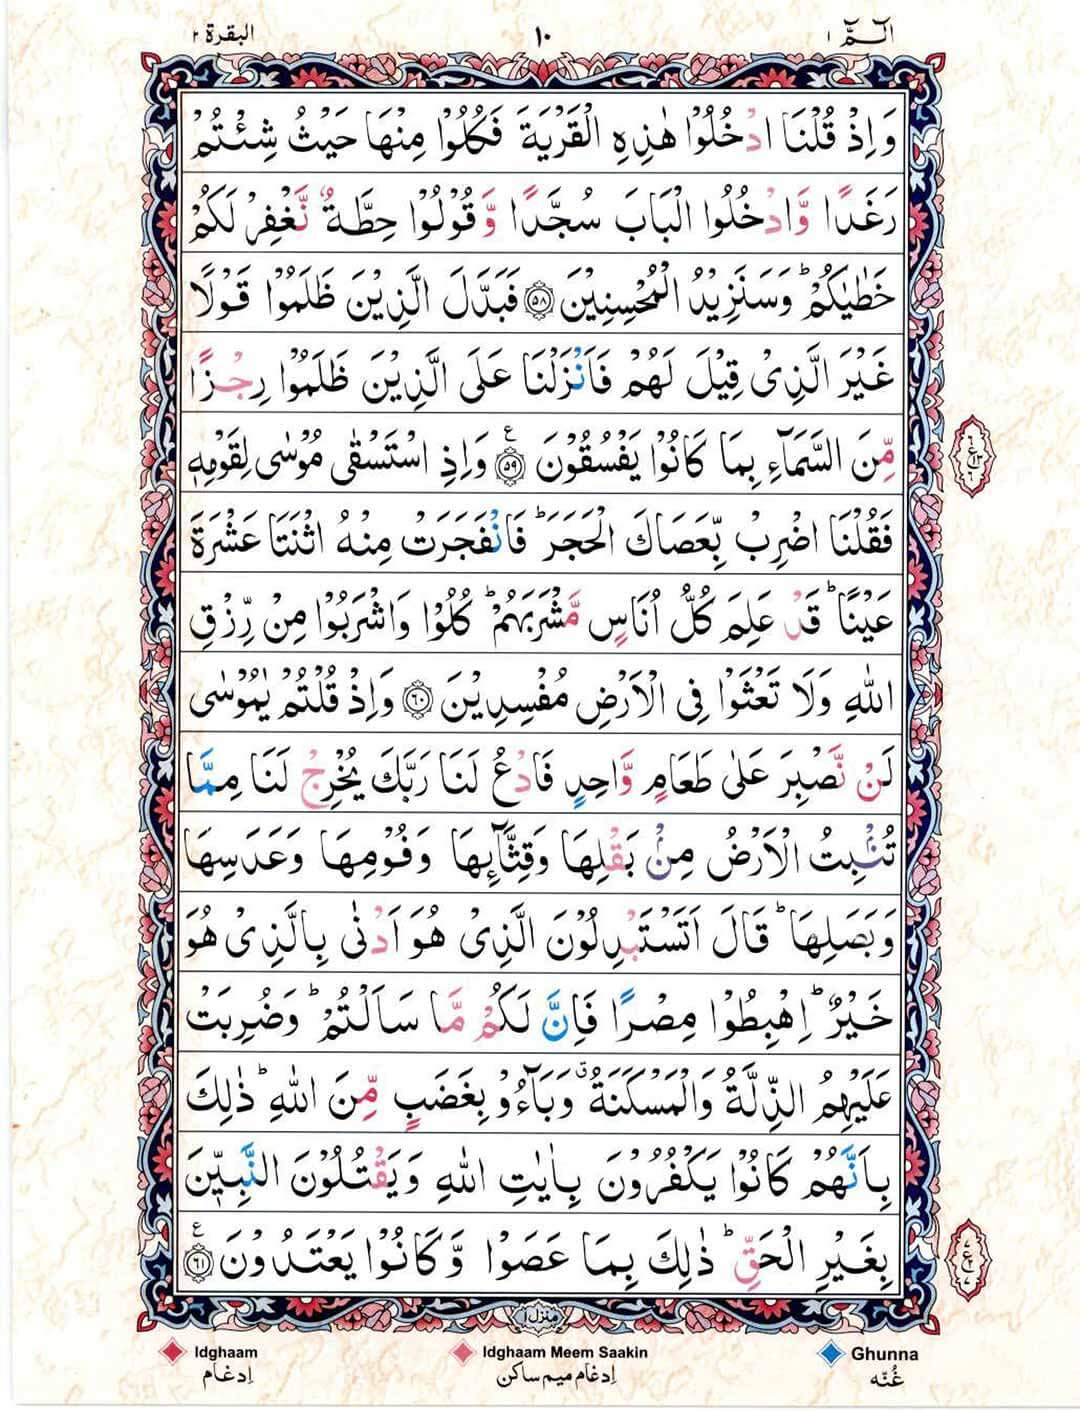 الٓمّٓ ١
١٠
البقرة ٢
وَاِذْ قُلْنَا ادْخُلُوْا هٰذِهِ الْقَرْيَةَ فَكُلُوْا مِنْهَا حَيْثُ شِئْتُمْ
رَغَدًا وَّادْخُلُوا الْبَابَ سُجَّدًا وَّقُوْلُوْا حِطَّةٌ نَّغْفِرْ لَكُمْ
خَطٰيٰكُمْ ؕ وَسَنَزِيْدُ الْمُحْسِنِيْنَ ۝٥٨ فَبَدَّلَ الَّذِيْنَ ظَلَمُوْا قَوْلًا
غَيْرَ الَّذِىْ قِيْلَ لَهُمْ فَاَنْزَلْنَا عَلَى الَّذِيْنَ ظَلَمُوْا رِجْزًا
مِّنَ السَّمَآءِ بِمَا كَانُوْا يَفْسُقُوْنَ ۝٥٩ ع وَاِذِ اسْتَسْقٰى مُوْسٰى لِقَوْمِهٖ
فَقُلْنَا اضْرِبْ بِّعَصَاكَ الْحَجَرَ ؕ فَانْفَجَرَتْ مِنْهُ اثْنَتَا عَشْرَةَ
عَيْنًا ؕ قَدْ عَلِمَ كُلُّ اُنَاسٍ مَّشْرَبَهُمْ ؕ كُلُوْا وَاشْرَبُوْا مِنْ رِّزْقِ
اللّٰهِ وَلَا تَعْثَوْا فِى الْاَرْضِ مُفْسِدِيْنَ ۝٦٠ وَاِذْ قُلْتُمْ يٰمُوْسٰى
لَنْ نَّصْبِرَ عَلٰى طَعَامٍ وَّاحِدٍ فَادْعُ لَنَا رَبَّكَ يُخْرِجْ لَنَا مِمَّا
تُنْۢبِتُ الْاَرْضُ مِنْۢ بَقْلِهَا وَقِثَّآئِهَا وَفُوْمِهَا وَعَدَسِهَا
وَبَصَلِهَا ؕ قَالَ اَتَسْتَبْدِلُوْنَ الَّذِىْ هُوَ اَدْنٰى بِالَّذِىْ هُوَ
خَيْرٌ ؕ اِهْبِطُوْا مِصْرًا فَاِنَّ لَكُمْ مَّا سَاَلْتُمْ ؕ وَضُرِبَتْ
عَلَيْهِمُ الذِّلَّةُ وَالْمَسْكَنَةُ ۗ وَبَآءُوْ بِغَضَبٍ مِّنَ اللّٰهِ ؕ ذٰلِكَ
بِاَنَّهُمْ كَانُوْا يَكْفُرُوْنَ بِاٰيٰتِ اللّٰهِ وَيَقْتُلُوْنَ النَّبِيّٖنَ
بِغَيْرِ الْحَقِّ ؕ ذٰلِكَ بِمَا عَصَوْا وَّكَانُوْا يَعْتَدُوْنَ ۝٦١ ع
منزل ١
Idghaam
Idghaam Meem Saakin
Ghunna
اِدغَام
اِدغَام ميم ساكن
غُنّه